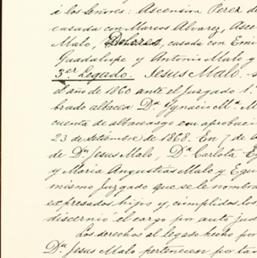 á los Señores: Ascensión Perez d
casada con Marcos Alvarez, Asce
Malo, Dolores, casada con Emi
Guadalupe y Antonio Malo y
3er Legado. Jesus Malo. s
el año de 1860 ante el Juzgado 1.
brado albacea Dn Ignacio Ma M
cuenta de albaceasgo con aprobació
23 de Setiembre de 1868. En 7 de
de Dn Jesus Malo, Da Carlota E
y María Angustias Malo y Egui
mismo Juzgado que se le nombra
expresados hijos y, cumplidos los
discernió el cargo por auto jud
Los derechos al legado hecho por
Dn Jesus Malo pertenecen por ta